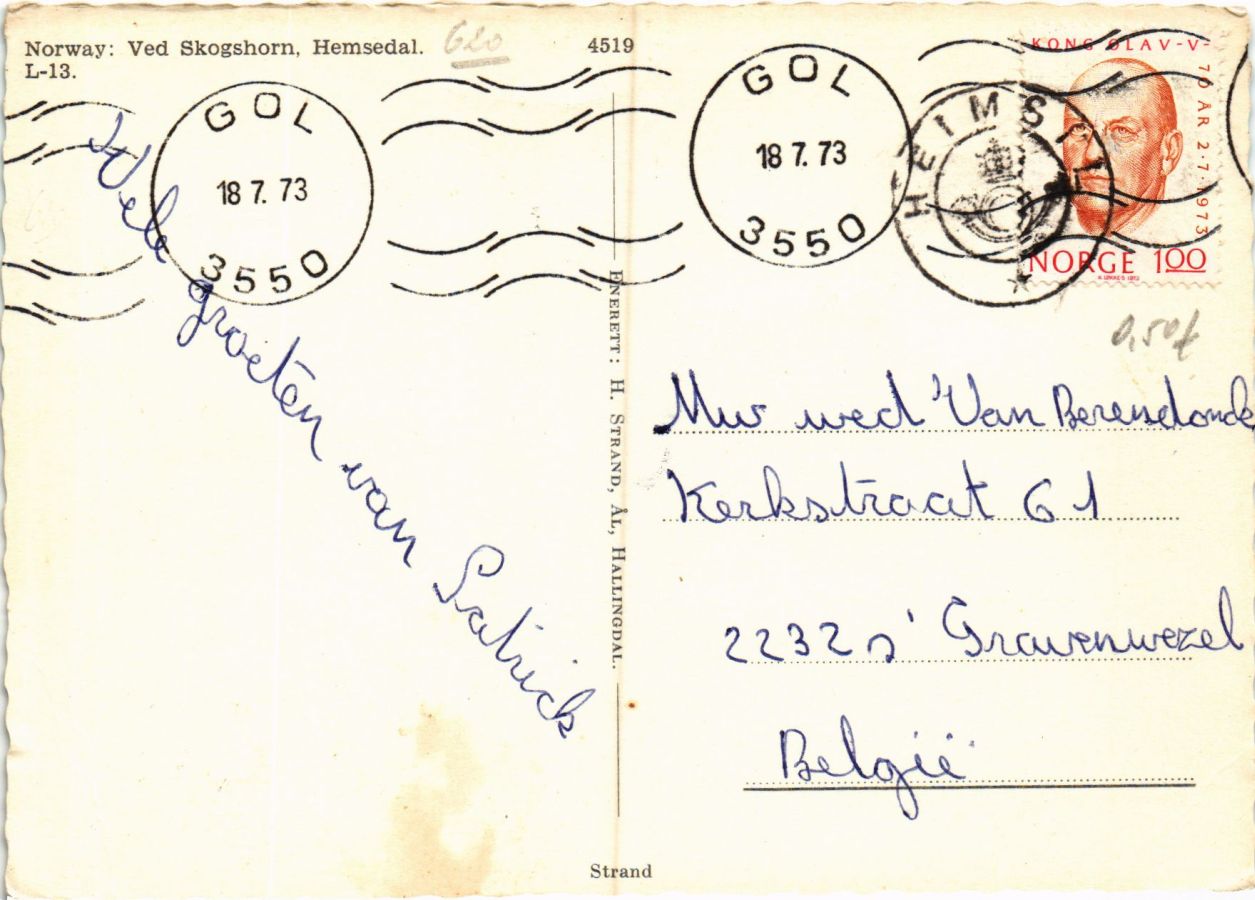 Norway: Ved Skogshorn, Hemsedal.
L-13.
620
4519
GOL
18 7. 73
3550
GOL
18 7. 73
3550
KONG OLAV-V-
70 ÅR 2·7·1973
NORGE 1.00
0,50f
Vele groeten van Patrick
ENERETT: H. STRAND, ÅL, HALLINGDAL.
Mw wed Van Berendonck
Kerkstraat 61
2232 s' Gravenwezel
België
Strand